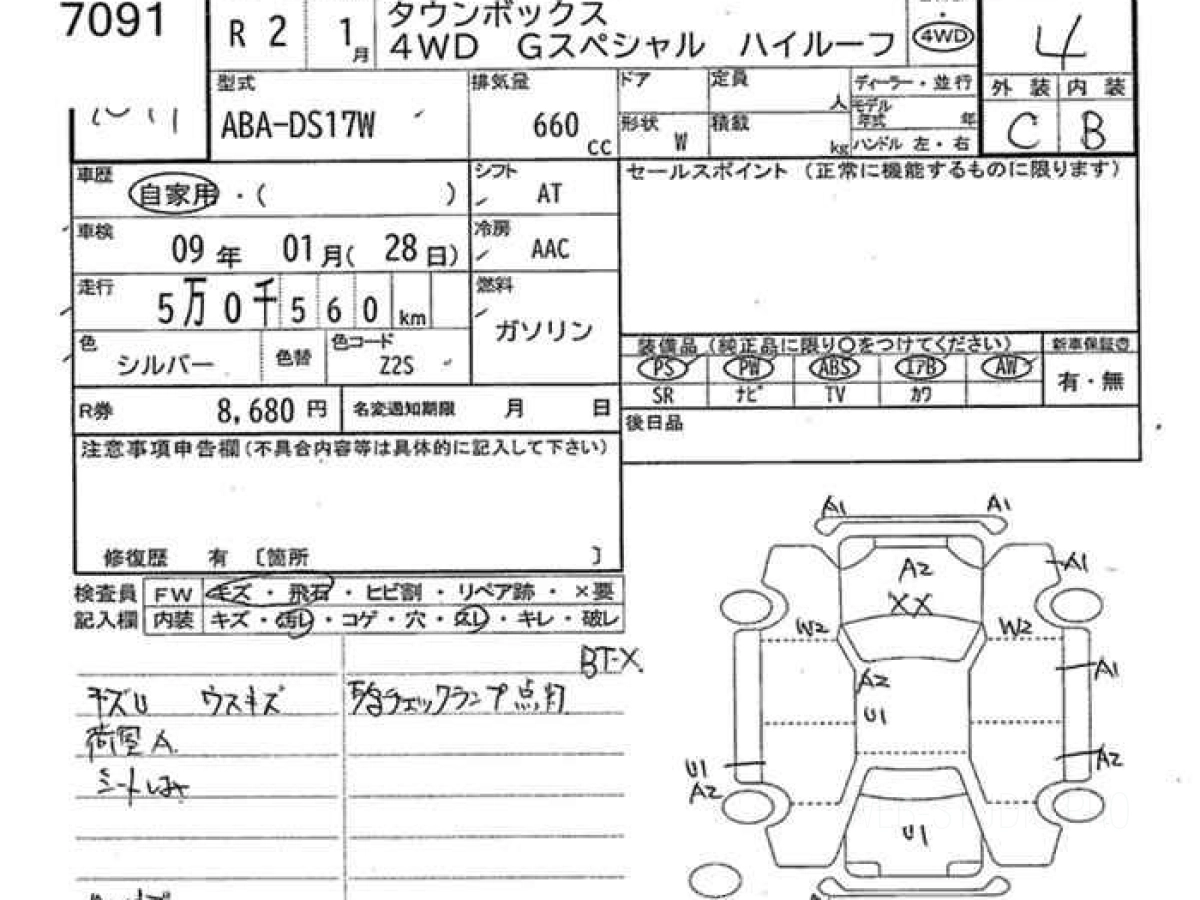 7091
R 2
1月
タウンボックス
4WD Gスペシャル ハイルーフ
・
4WD
4
型式
ABA-DS17W
排気量
660 cc
ドア
定員 人
形状 W
積載 kg
ディーラー・並行
モデル年式 年
ハンドル 左・右
外装 内装
C B
車歴
自家用・( )
シフト
AT
車検
09年 01月(28日)
冷房
AAC
走行
5万0千560km
燃料
ガソリン
色
シルバー
色替
色コード
Z2S
R券 8,680円
名変通知期限 月 日
セールスポイント (正常に機能するものに限ります)
装備品(純正品に限り○をつけてください)
新車保証書
PS PW ABS エアB AW
SR ナビ TV カワ
有・無
後日品
注意事項申告欄(不具合内容等は具体的に記入して下さい)
修復歴 有 〔箇所 〕
検査員 FW キズ・飛石・ヒビ割・リペア跡・×要
記入欄 内装 キズ・汚し・コゲ・穴・スレ・キレ・破レ
BT-X
キズU ウスキズ
チェックランプ点灯
荷室A.
シートしみ
A1 A1
A2
A1
XX
W2 W2
A2
A1
U1
U1
A2
A2
U1